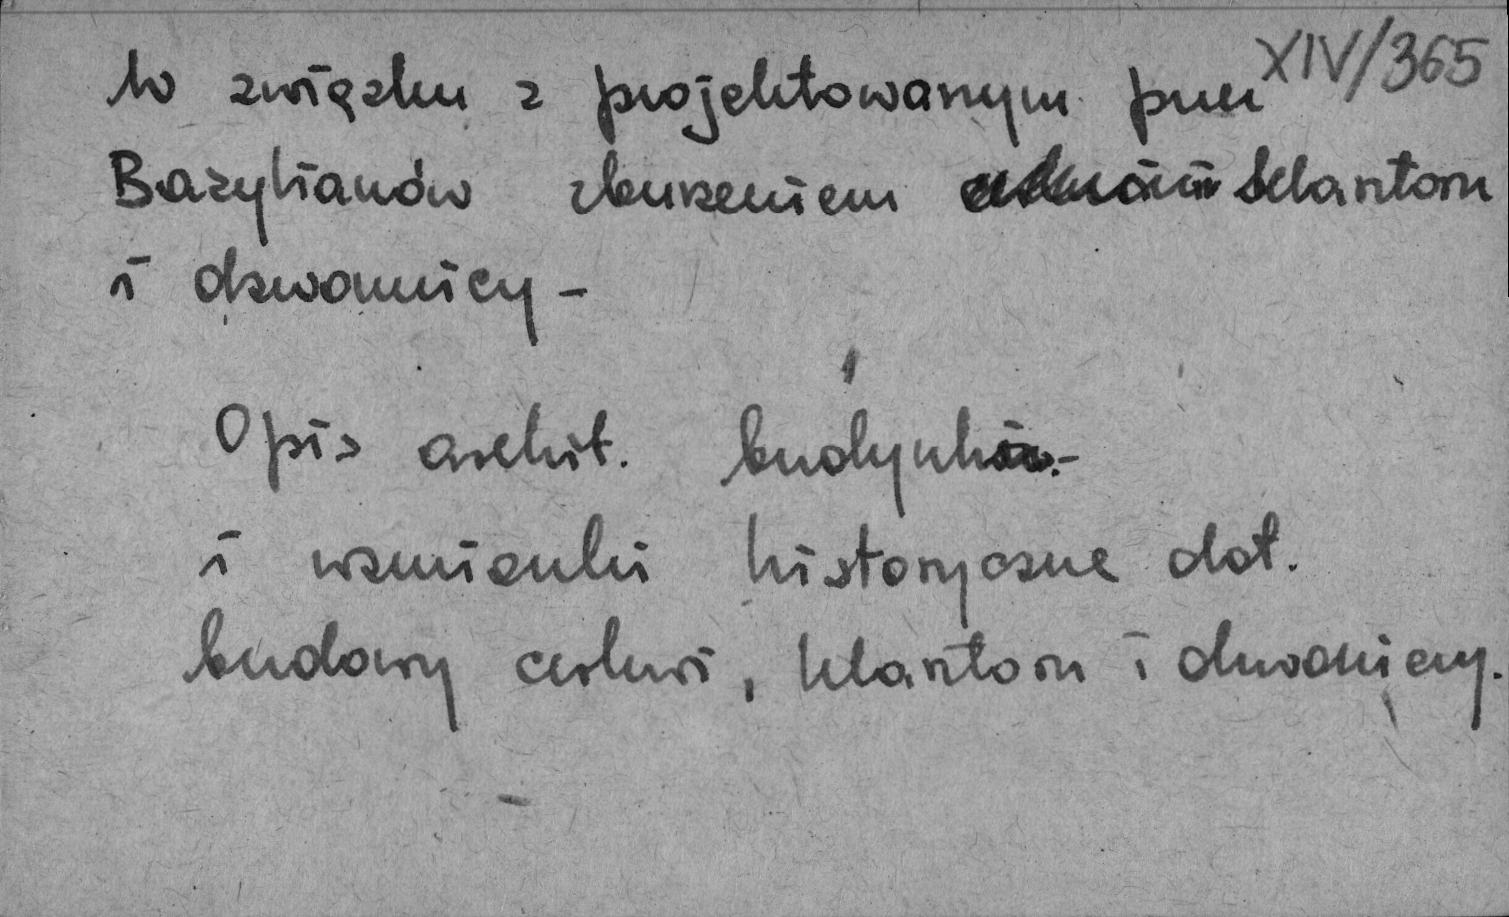 XIV/365
W związku z projektowanym przez
Bazylianów zburzeniem klasztoru
i dzwonnicy -
Opis archit. budynków.-
i wzmianki historyczne dot.
budowy cerkwi, klasztoru i dzwonnicy.